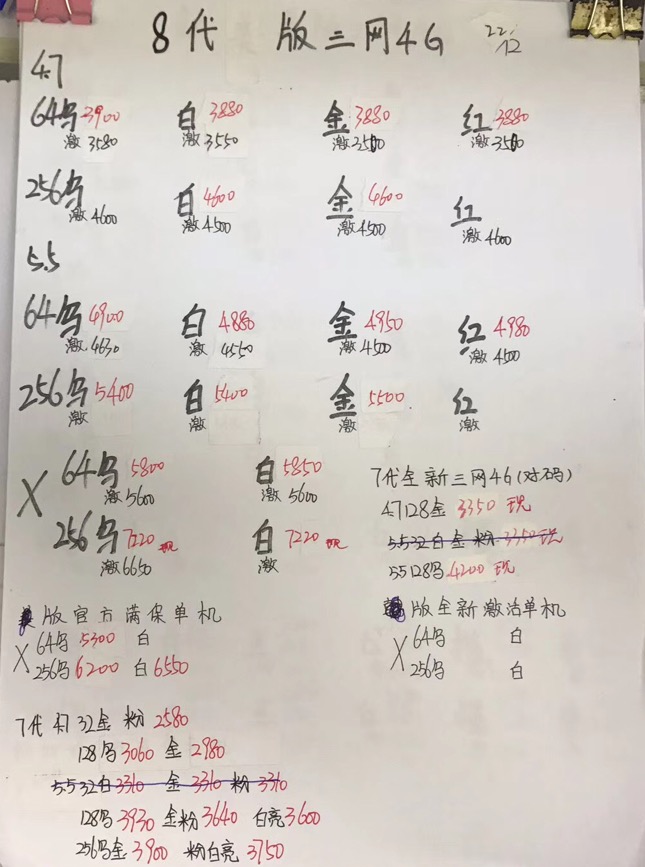 8代 版三网4G 22/12
4.7
64乌3900 白3880 金3880 红3880
激3580 激3550 激3500 激3500
256乌 白4600 金4600 红
激4600 激4500 激4500 激4600
5.5
64乌4900 白4880 金4950 红4980
激4630 激4550 激4500 激4500
256乌5400 白5400 金5500 红
激 激 激
X 64乌5800 白5850
激5600 激5600
256乌7220现 白7220现
激6650 激
7代全新三网4G(对码)
4.7128金 3350 现
5.532白金粉 3350现
5.5128乌4200现
版官方满保单机
X 64乌5300 白
256乌6200 白6550
版全新激活单机
X 64乌 白
256乌 白
7代 4.7 32金 粉2580
128乌3060 金2980
5.532白3310 金3310 粉3310
128乌3930 金粉3640 白亮3600
256乌金3900 粉白亮3750